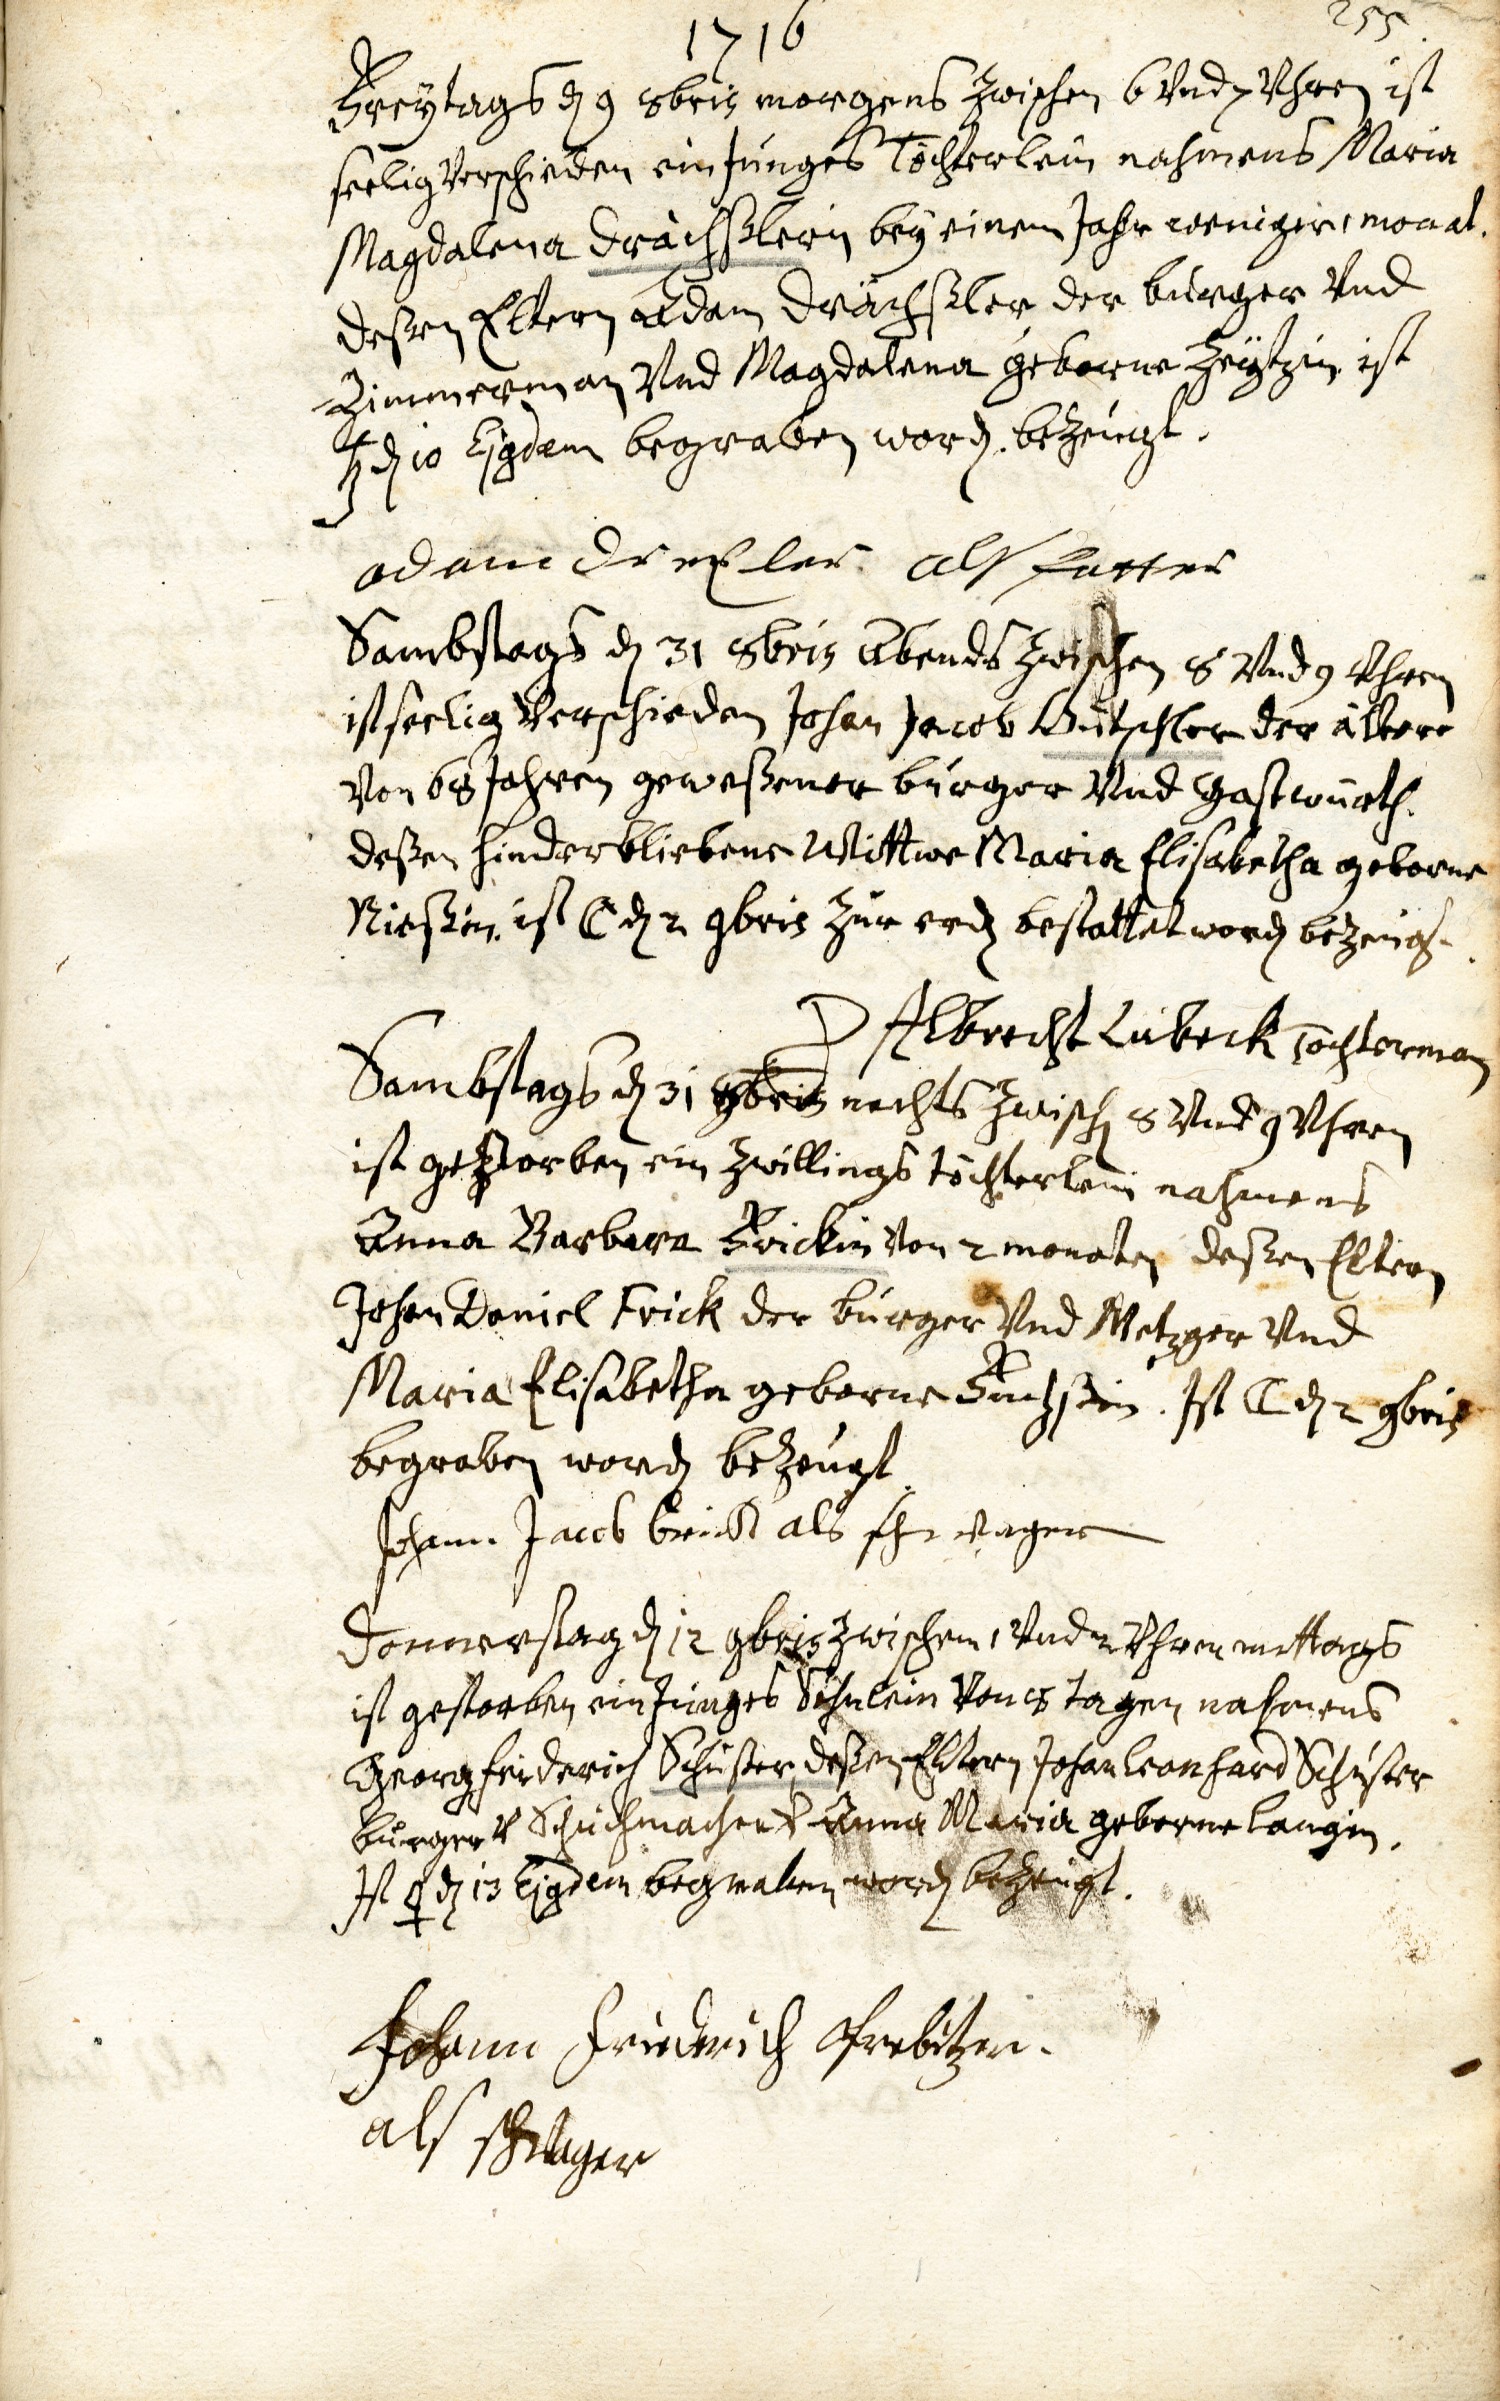 1716
255
Freytags d. 9 8bris morgens Zwischen 6 Vnd 7 Vhren ist
seelig Verschieden ein Junges Töchterlein nahmens Maria
Magdalena Drächßlerin bey einem Jahr weniger 1 monat.
deßen Eltern Adam Drächßler der burger Vnd
Zimmerman Vnd Magdalena geborne ist
♄ d. 10 Ejusdem begraben word. bezeugt.
adam drexler als fatter
Sambstags d. 31 8bris Abends Zwischen 8 Vnd 9 Vhren
ist seelig Verschieden Johan Jacob Gütschler der ältere
Von 68 Jahren geweßener burger Vnd Gastwürth.
deßen hinderbliebene Wittwe Maria Elisabetha geborne
Nießin. ist ☾ d. 2 9bris Zur erd. bestattet word. bezeugt.
Albrecht Lübeck Tochterman
Sambstags d. 31 8bris nachts Zwisch. 8 Vnd 9 Vhren
ist gestorben ein Zwillings töchterlein nahmens
Anna Barbara Frickin Von 2 monaten deßen Eltern
Johan Daniel Frick der burger Vnd Metzger Vnd
Maria Elisabetha geborne . Ist ☾ d. 2 9bris
begraben word. bezeugt
Johann Jacob als schwager
Donnerstag d. 12 9bris Zwischen 1 Vnd 2 Vhren mittags
ist gestorben ein Junges Söhnlein Von 15 tagen nahmens
Georg friderich Schuster, deßen Eltern Johan Leonhard Schuster
burger V Schuchmacher V Anna Maria geborne Langin.
Ist ♀ d. 13 Ejusdem begraben word. bezeugt.
Johann Friederich
als schwager